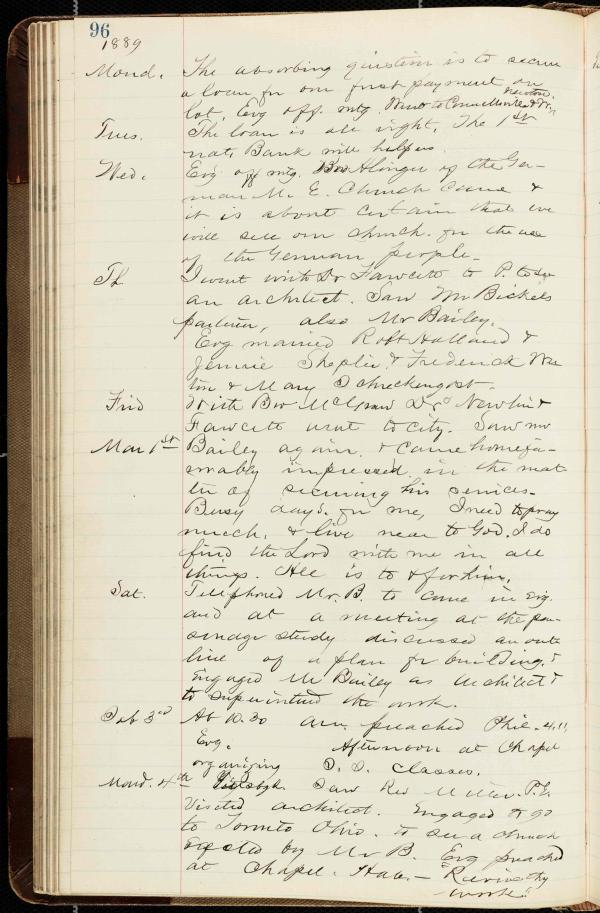 96
1889
Mond. The absorbing question is to secure
a loan for our first payment on
lot. Evg off. mtg. Went to Connellsville & Dr. Newton.
Tues. The loan is all right. The 1st
nat. Bank will help us.
Wed. Evg off mtg. Bro Hlinger of the Ger-
man M. E. Church came &
it is about certain that we
will sell our church for the use
of the German people.
Th I went with Dr Fawcett to P. to see
an architect. Saw Mr Bickels
partner, also Mr Bailey.
Evg married Robt Holland &
Jennie Shepler & Frederick
& Mary Schreckengost.
Frid With Bro McGraw Drs Newlin &
Fawcett went to city. Saw Mr
Mar 1st Bailey again & came home fa-
vorably impressed in the mat-
ter of securing his services.
Busy days for me, I need to pray
much, & live near to God. I do
find the Lord with me in all
things. All is to & for him.
Sat. Telephoned Mr. B. to come in Evg.
and at a meeting at the par-
sonage study discussed an out-
line of a plan for building, &
Engaged Mr Bailey as architect &
to superintend the work.
Sab 3rd At 10.30 am. preached Phil. 4.11,
Evg. Afternoon at Chapel
organizing S. S. classes.
Mond. 4th Pittsbgh. Saw Rev Miller. P. E.
Visited architect. Engaged to go
to Toronto Ohio. to see a church
erected by Mr B. Evg preached
at Chapel. Hab. — "Revive thy
work"